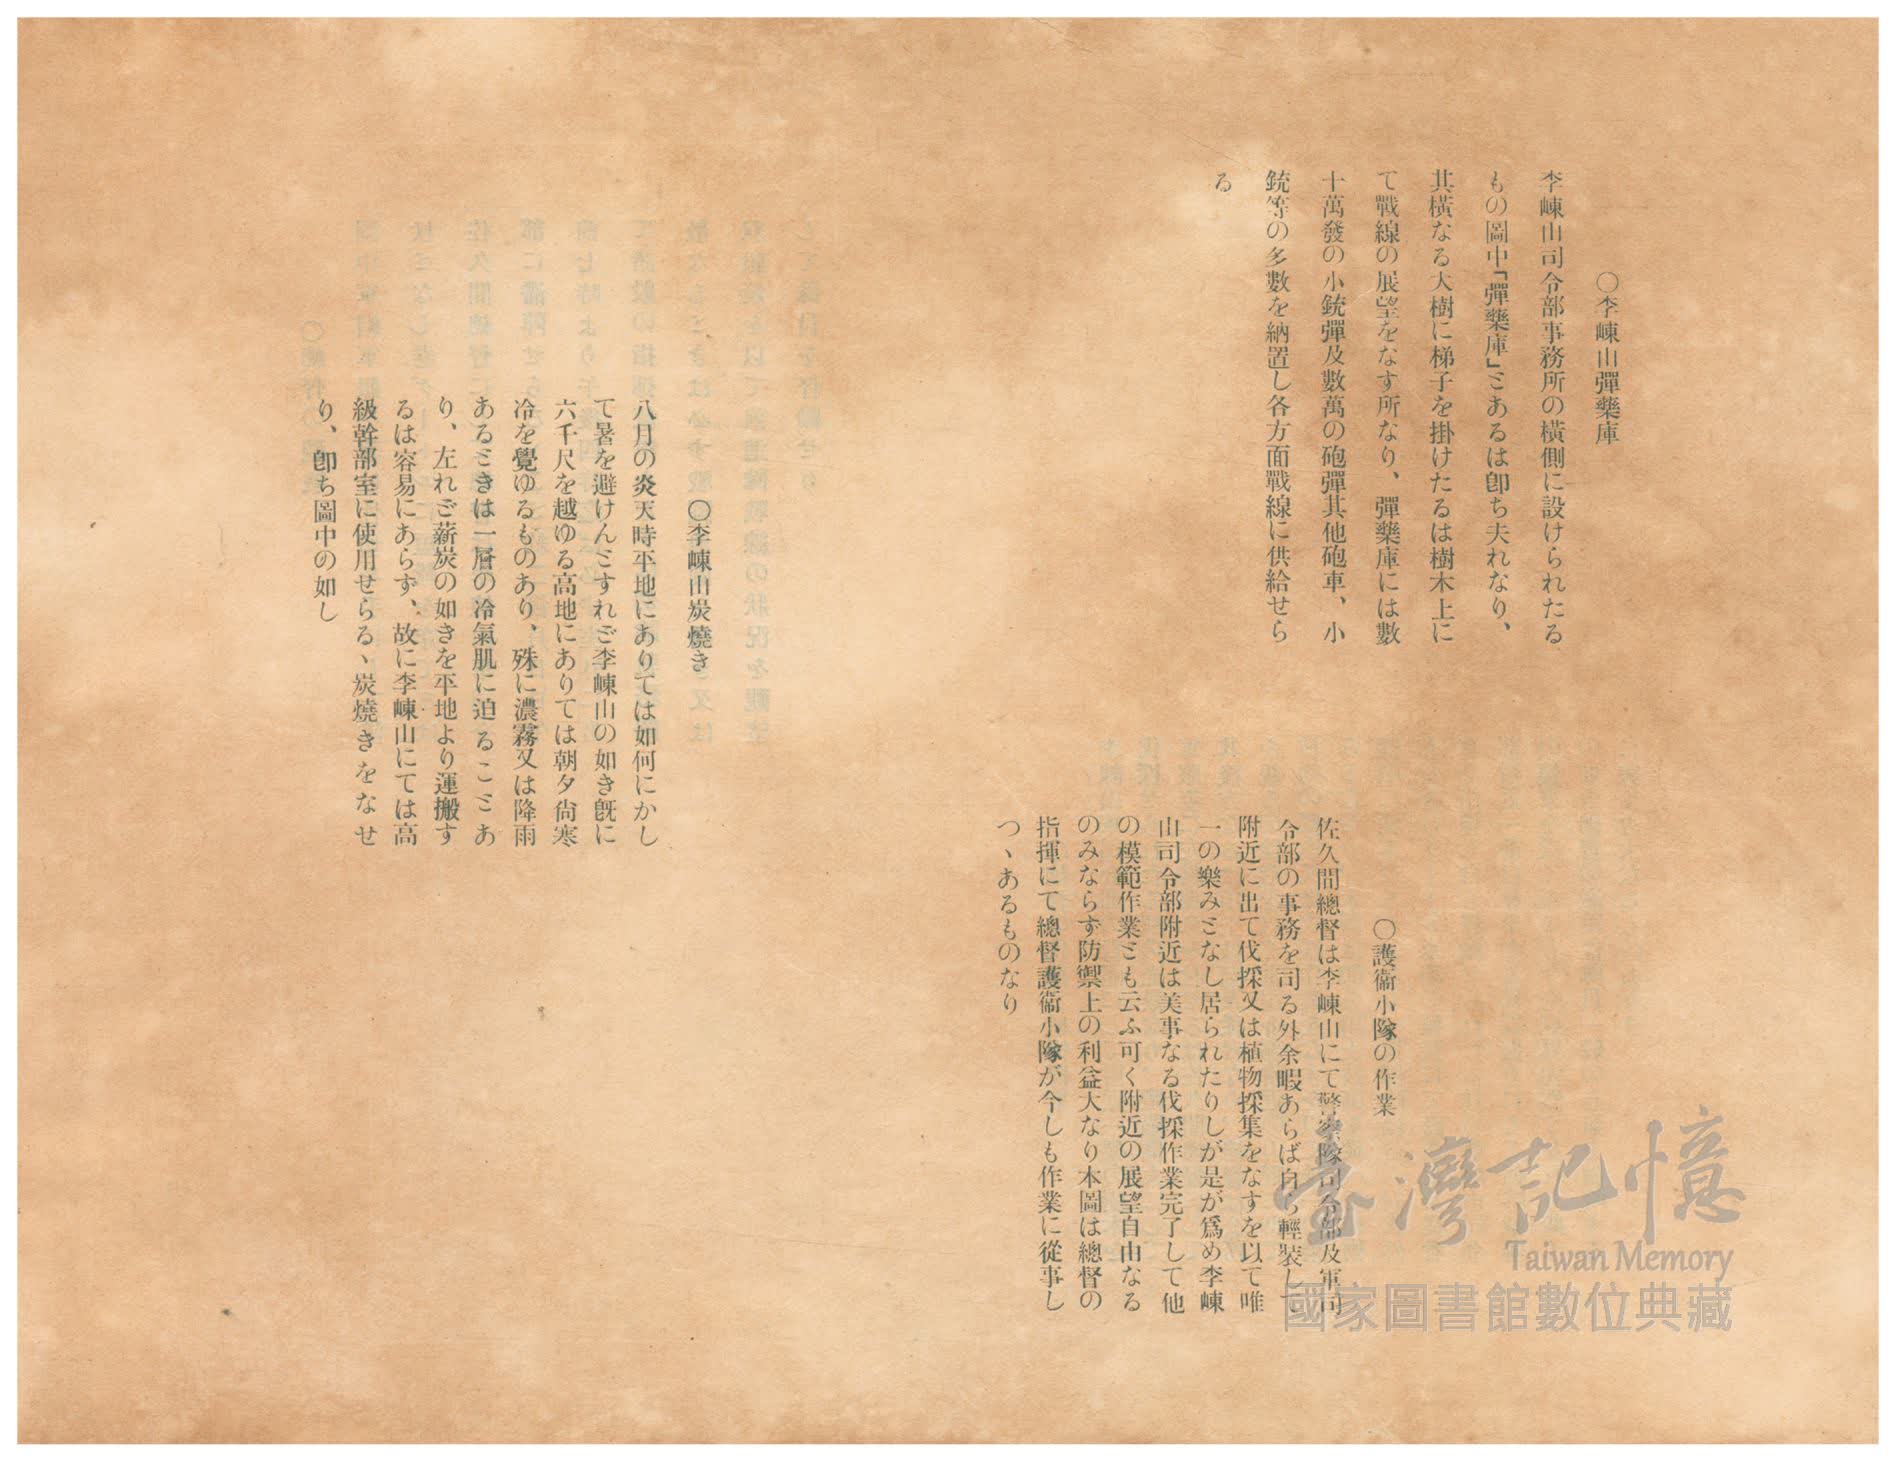 〇李崠山彈藥庫
李崠山司令部事務所の橫側に設けられたる
もの圖中「彈藥庫」とあるは卽ち夫れなり、
其橫なる大樹に梯子を掛けたるは樹木上に
て戰線の展望をなす所なり、彈藥庫には數
十萬發の小銃彈及數萬の砲彈其他砲車、小
銃等の多數を納置し各方面戰線に供給せら
る
〇護衞小隊の作業
佐久間總督は李崠山にて警察隊司令部及軍司
令部の事務を司る外余暇あらば自ら輕裝して
附近に出て伐採又は植物採集をなすを以て唯
一の樂みとなし居られたりしが是が爲め李崠
山司令部附近は美事なる伐採作業完了して他
の模範作業とも云ふ可く附近の展望自由なる
のみならず防禦上の利益大なり本圖は總督の
指揮にて總督護衞小隊が今しも作業に從事し
つヽあるものなり
〇李崠山炭燒き
八月の炎天時平地にありては如何にかし
て暑を避けんとすれど李崠山の如き旣に
六千尺を越ゆる高地にありては朝夕尙寒
冷を覺ゆるものあり、殊に濃霧又は降雨
あるときは一層の冷氣肌に迫ることあ
り、左れど薪炭の如きを平地より運搬す
るは容易にあらず、故に李崠山にては高
級幹部室に使用せらるヽ炭燒きをなせ
り、卽ち圖中の如し
臺灣記憶
Taiwan Memory
國家圖書館數位典藏